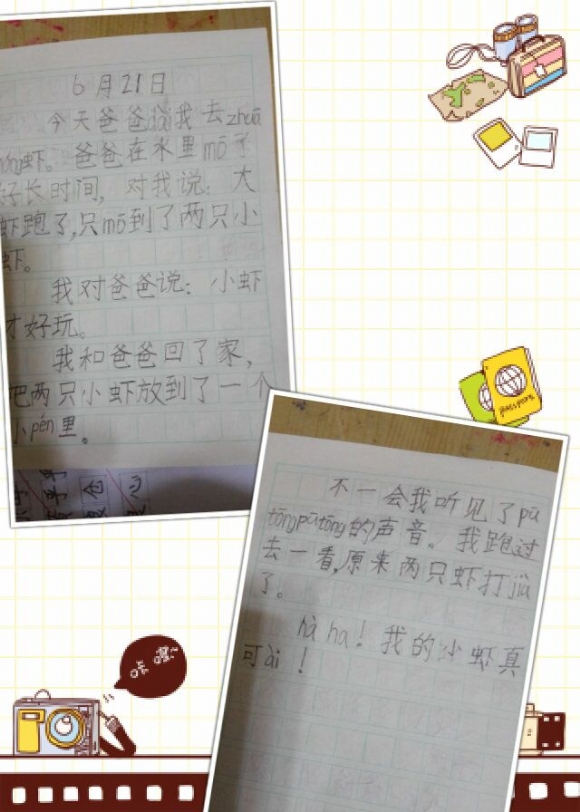 6月21日
今天爸爸dài我去zhuā
虾。爸爸在水里mō了
好长时间，对我说：大
虾跑了，只mō到了两只小
虾。
我对爸爸说：小虾
才好玩。
我和爸爸回了家，
把两只小虾放到了一个
小pén里。
不一会我听见了pū
tōngpūtōng的声音。我跑过
去一看，原来两只虾打jià
了。
hà ha！我的小虾真
可ài！
passport
咔嚓~